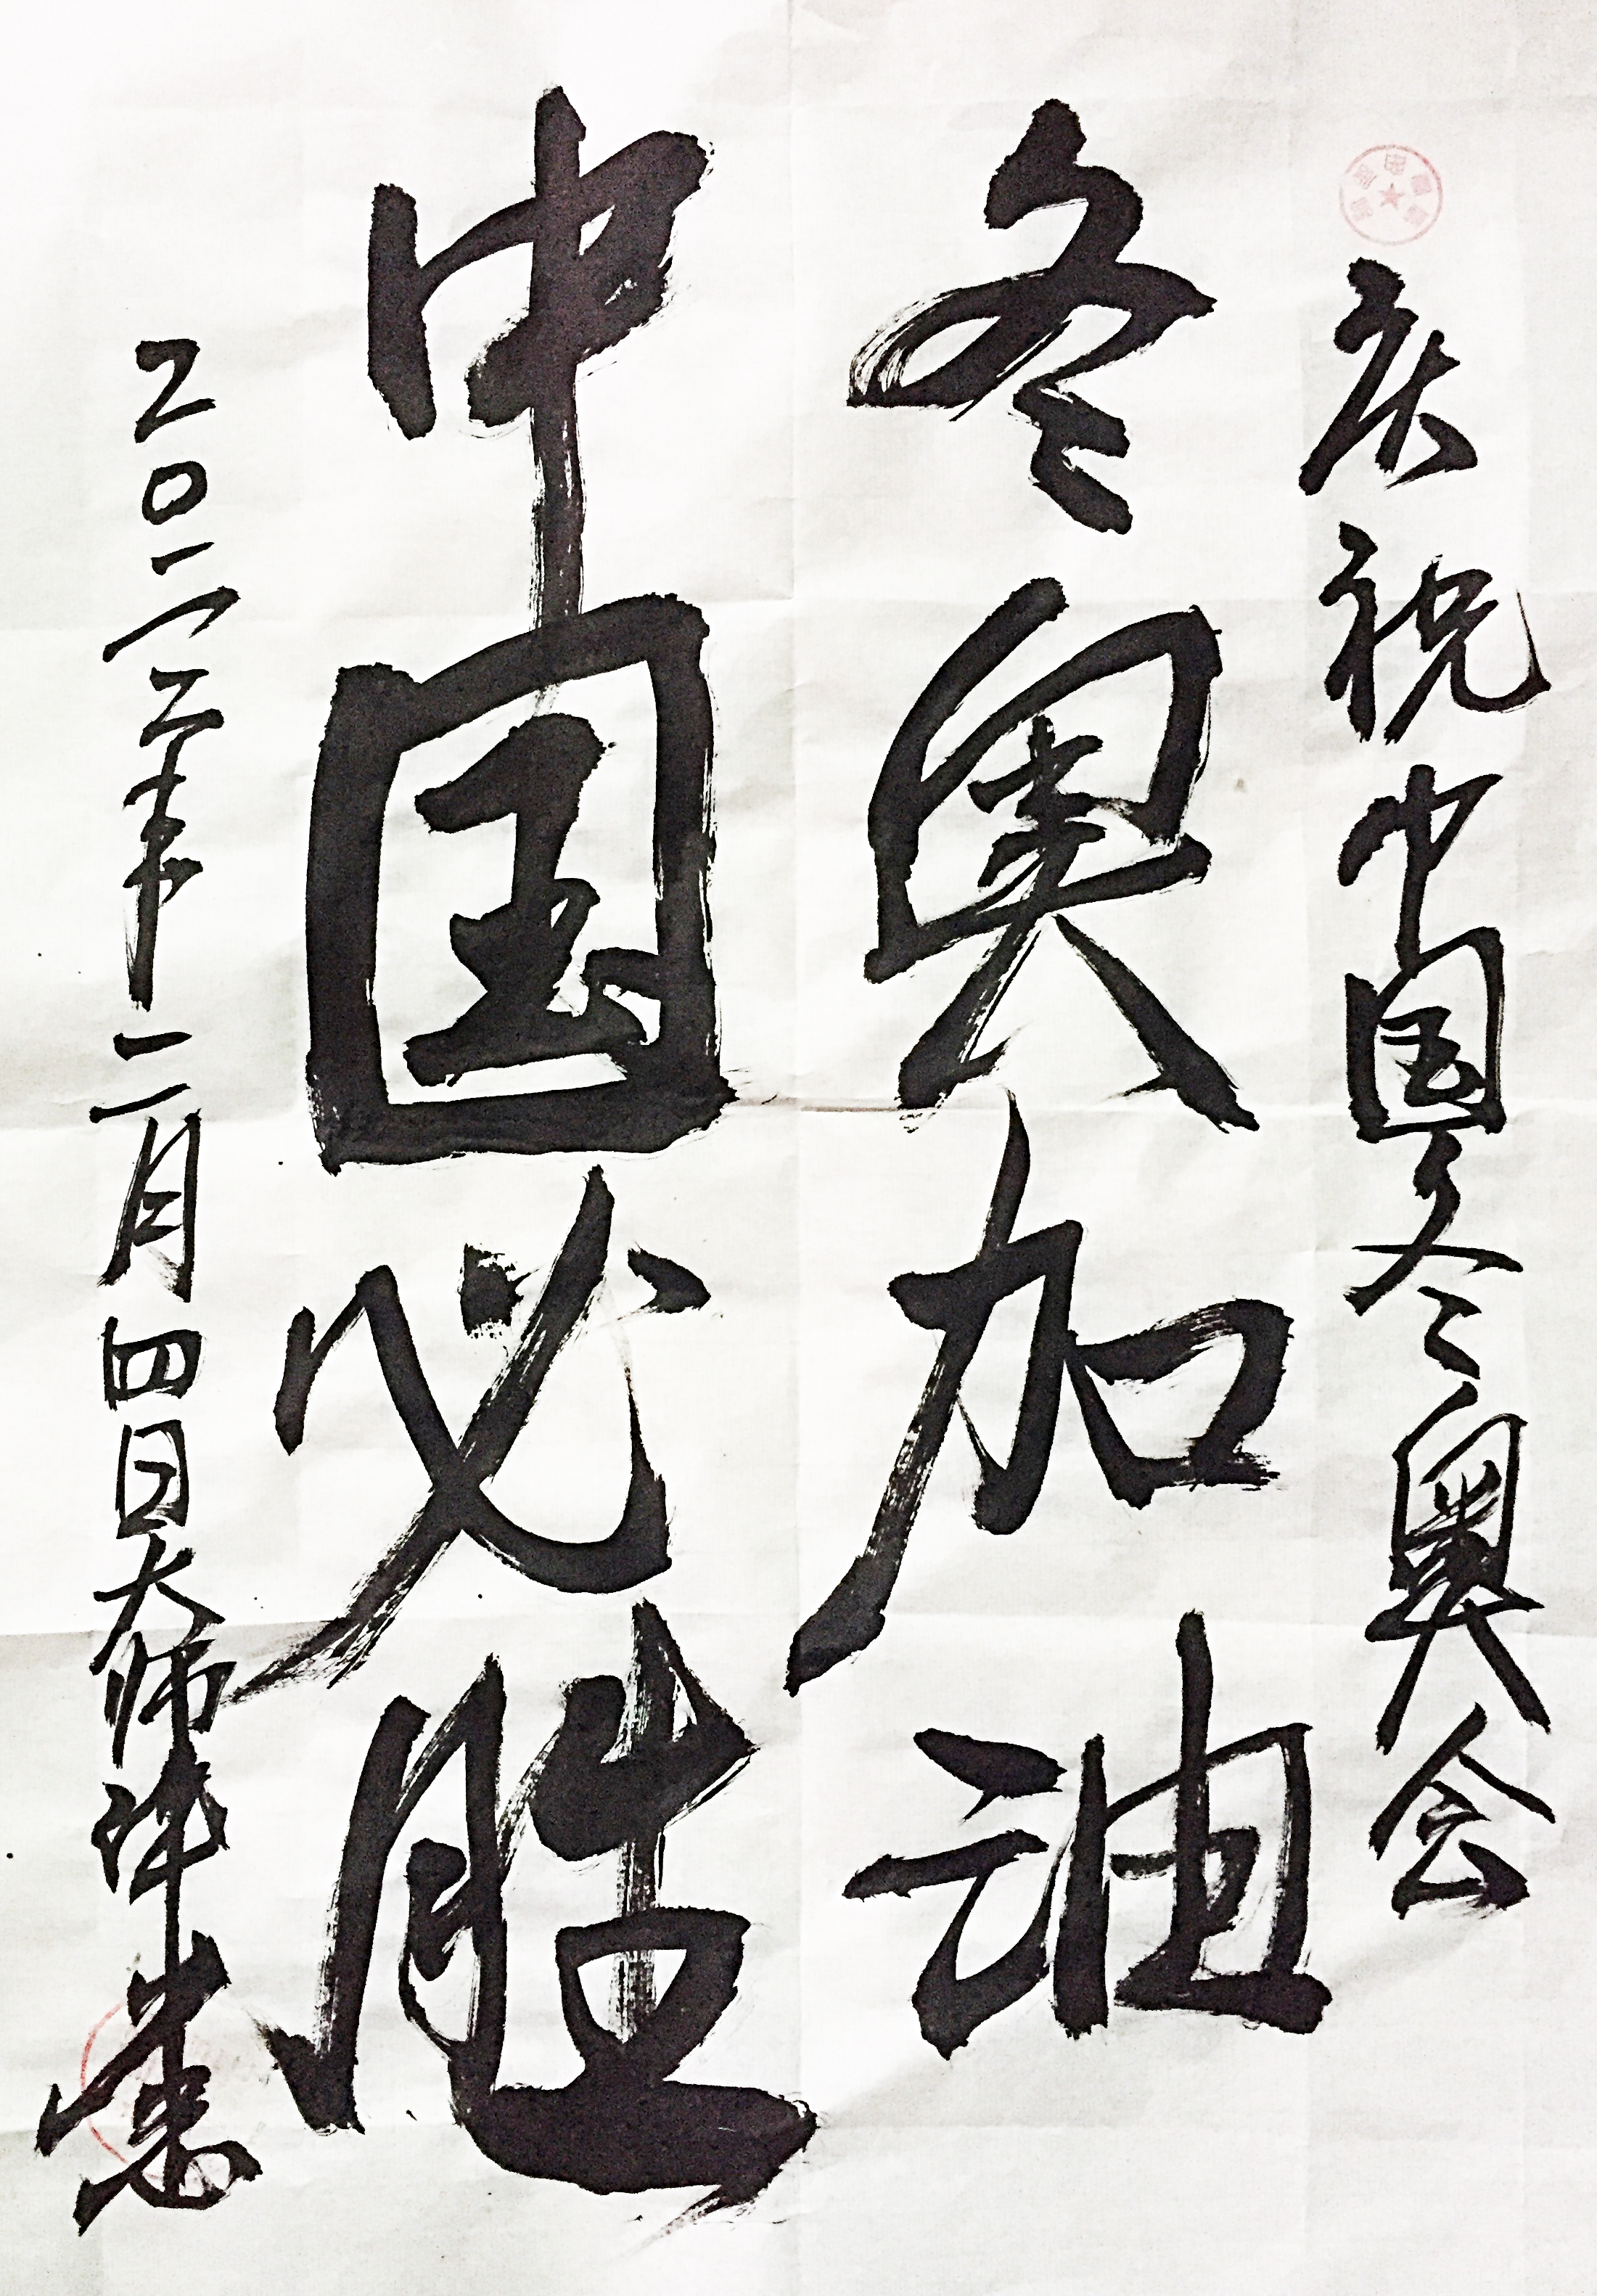 庆祝中国冬奥会
冬奥加油
中国必胜
20二2年二月四日大师